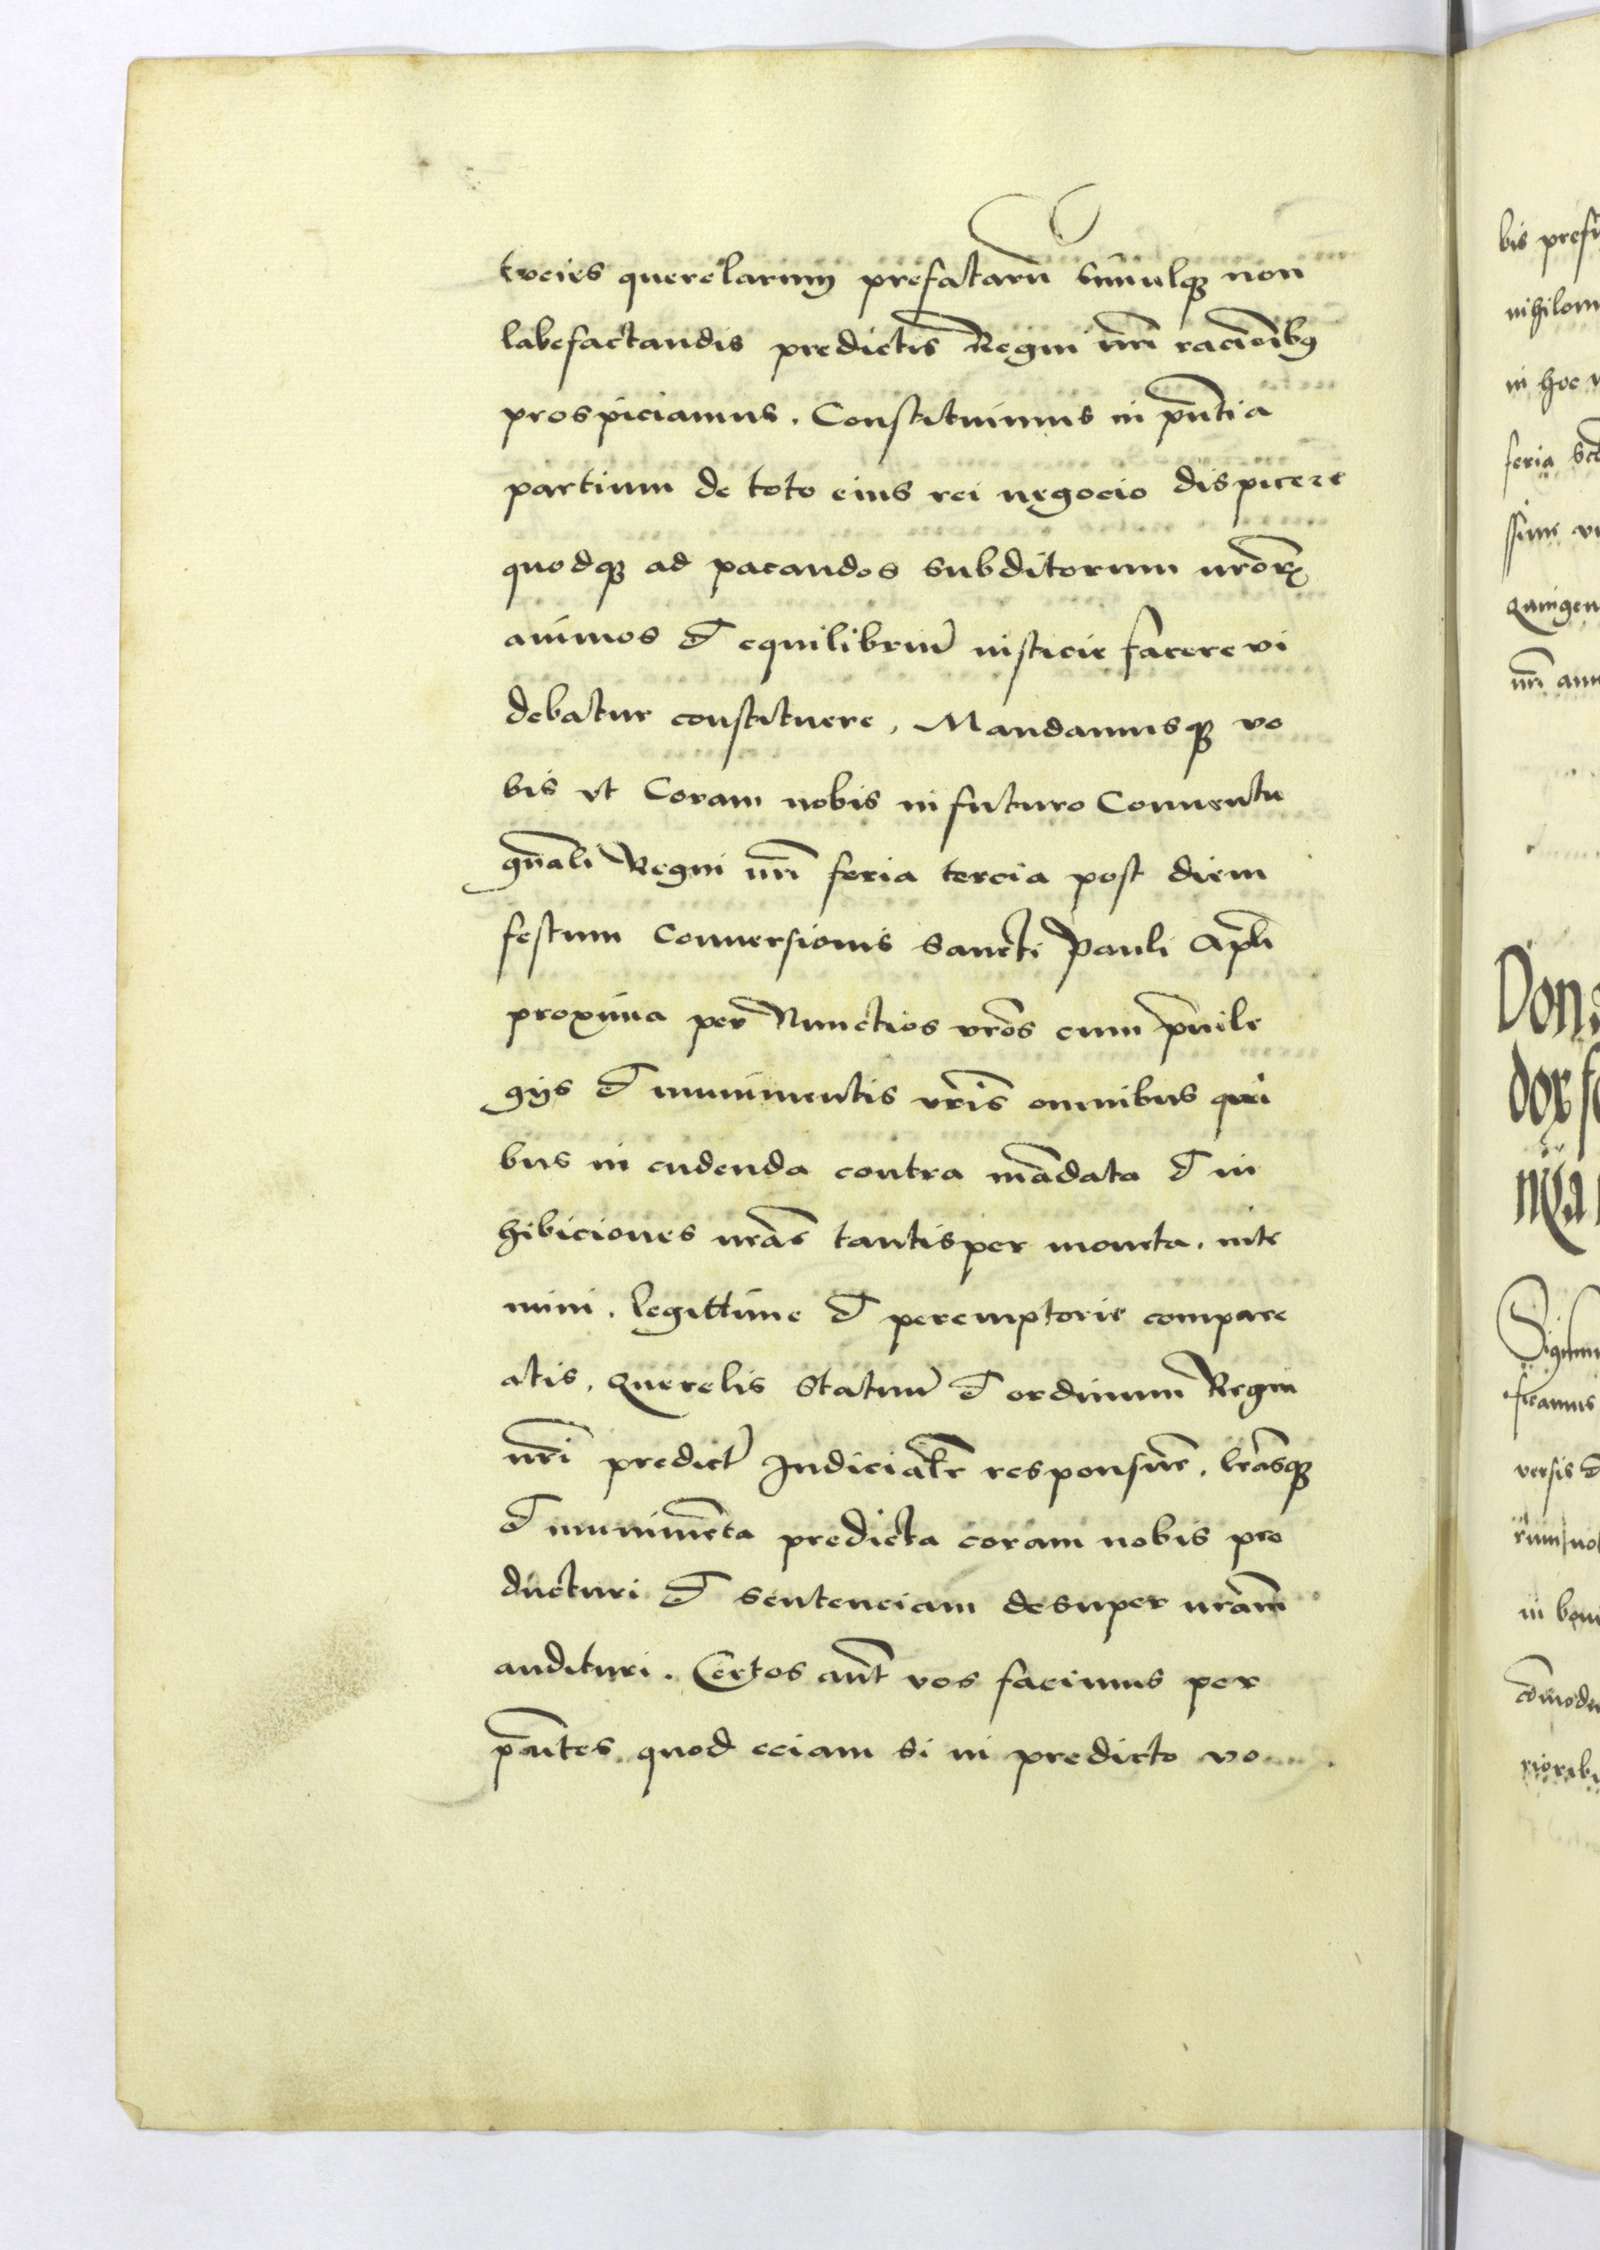 tocies querelarum prefataru simulq non
labefactandis predictis Regni nri racionibus
prospiciamus. Constituimus in pntia
partium de toto eius rei negocio dispicere
quodq ad pacandos subditorum nroru
animos et equilibriu iusticie facere vi
debatur constituere, Mandamusq vo
bis vt Coram nobis in futuro Conuentu
gnali Regni nri feria tercia post diem
festum Conuersionis Sancti Pauli Apli
proxima per Nunctios vros cum priuile
gijs et munimentis vris omnibus qui
bus in cudenda contra madata et in
hibiciones nras tantisper moneta. nite
mini. legittime et peremptorie compare
atis. querelis Statuu et ordinum Regni
nri predict Judicialr responsur. lrasq
et munimeta predicta coram nobis pro
ducturi et sentenciam desuper nram
audituri. Certos aut vos facimus per
pntes quod eciam si in predicto vo
bis prefi
nihilom
in hoc
feria
ssimi
Quingen
nri ann
Don
dorf
Sigism
ficamus
versis
rum
in
comodu
rioribu